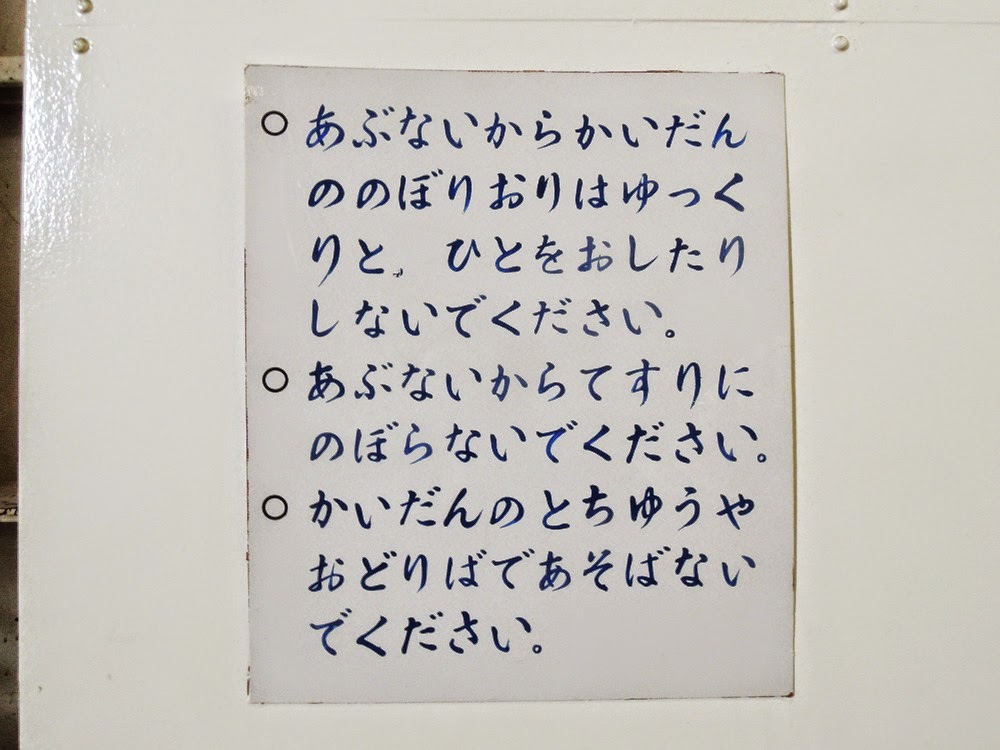 ○ あぶないからかいだん
ののぼりおりはゆっく
りと、ひとをおしたり
しないでください。
○ あぶないからてすりに
のぼらないでください。
○ かいだんのとちゆうや
おどりばであそばない
でください。